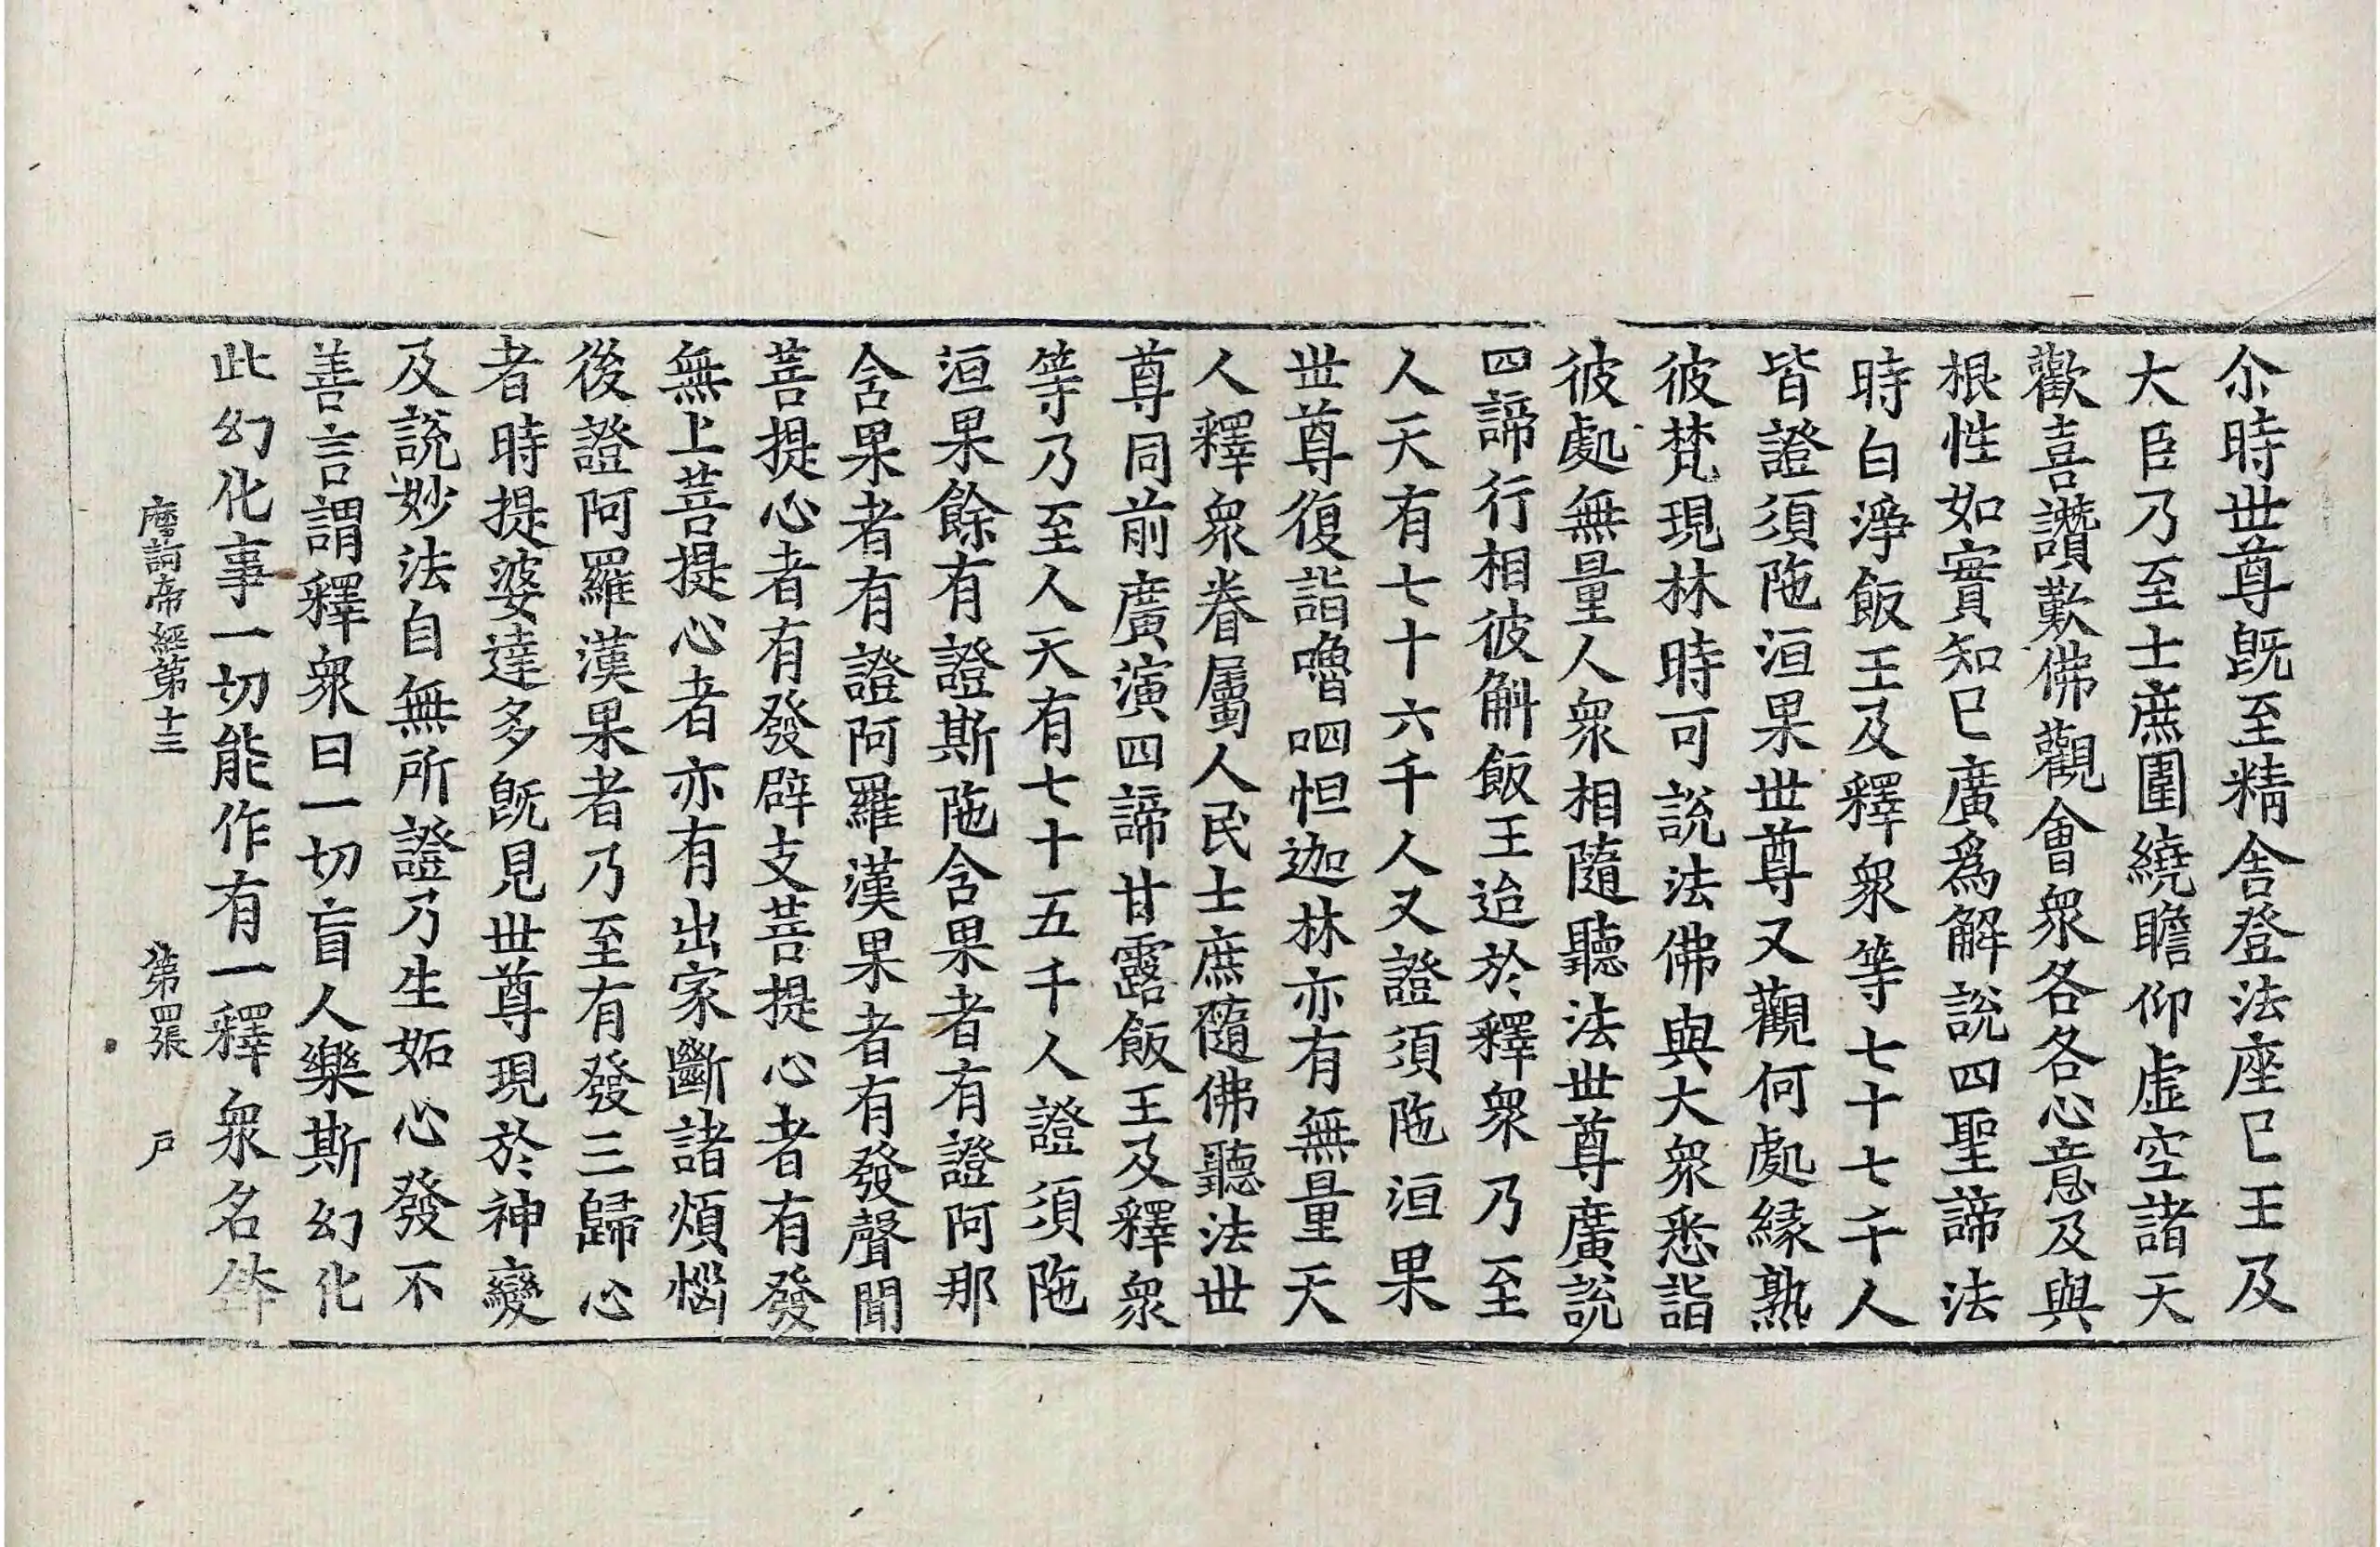 尒時世尊旣至精舍登法座已王及
大臣乃至士庶圍繞瞻仰虛空諸天
歡喜讚歎佛觀會衆各各心意及與
根性如實知已廣爲解說四聖諦法
時白淨飯王及釋衆等七十七千人
皆證須陁洹果世尊又觀何處緣熟
彼梵現林時可說法佛與大衆悉詣
彼處無量人衆相隨聽法世尊廣說
四諦行相彼斛飯王迨於釋衆乃至
人天有七十六千人又證須陁洹果
世尊復詣嚕呬怛迦林亦有無量天
人釋衆眷屬人民士庶隨佛聽法世
尊同前廣演四諦甘露飯王及釋衆
等乃至人天有七十五千人證須陁
洹果餘有證斯陁含果者有證阿那
含果者有證阿羅漢果者有發聲聞
菩提心者有發辟支菩提心者有發
無上菩提心者亦有出家斷諸煩惱
後證阿羅漢果者乃至有發三歸心
者時提婆達多旣見世尊現於神變
及說妙法自無所證乃生妬心發不
善言謂釋衆曰一切盲人樂斯幻化
此幻化事一切能作有一釋衆名
摩訶帝經第十三 第四張 戶